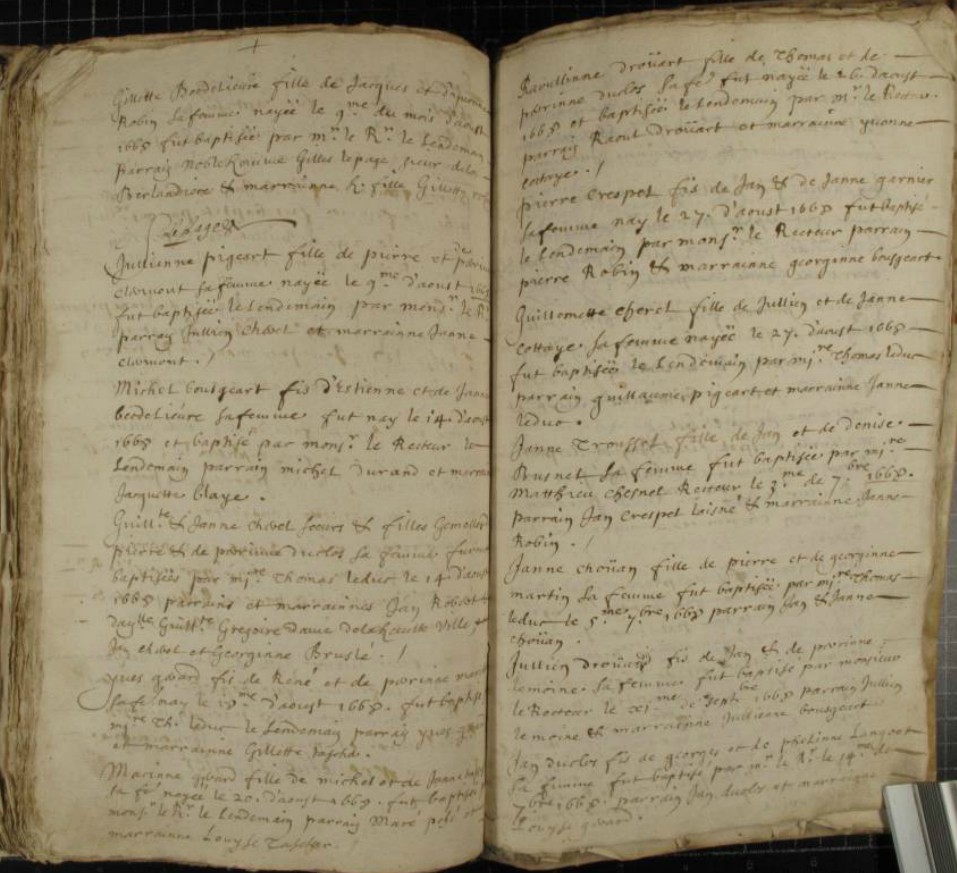 Gillette Bordelieure fille de Jacques et
Robin sa femme nayée le 9.me du mois d'aoust
1668 fut baptisée par mr. le Rr. le Lendemain
parrain Noble homme Gilles lepage sieur dela
Berlandiere & marrainne h. fille Gillette
Lepage
Jullienne pigeart fille de pierre et
clermont sa femme nayée le 9.me d'aoust 1668
fut baptisée le Lendemain par monsr. le Rr
parrain Jullien Chevel et marrainne Janne
clermont. /
Michel bousgeart fis d'Estienne et de Janne
bordelieure sa femme fut nay le 14 d'aoust
1668 et baptisé par monsr. le Recteur le
Lendemain parrain michel Durand et marrainne
Janguette blaye.
Guillte. & Janne chevel soeurs & filles Gemelles
pierre & de perrinne Duclos sa femme furent
baptisées par mire. Thomas leduc le 14 d'aoust
1668 parrains et marrainnes Jan Robert
daylle Guillte. Gregoire dame dela haulte Ville
Jan chevel et Georginne Bruslé. /
Yves gicard fis de René et de perrinne
sa fe. nay le 18.me d'aoust 1668. fut baptisé
mire Th. leduc le Lendemain parrain yves
et marrainne Gillette tasché.
Marinne gicard fille de michel et de Janne
sa fe. nayée le 20. d'aoust 1668. fut baptisée
monsr. le Rr. le Lendemain parrain Maré
marrainne Louyse Tascher.
Raoullinne Drouart fille de Thomas et de
perrinne duclos sa fe. fut nayée le 26 d'aoust
1668 et baptisée le Lendemain par mr. le Recteur.
parrain Raoul Drouart et marrainne yvonne
cottaye. /
pierre Crespel fis de Jan & de Janne garnier
sa femme nay le 27. d'aoust 1668 fut baptisé
le Lendemain par monsr. le Recteur parrain
pierre Robin & marrainne georginne bousgeart.
Guillemette cherel fille de Jullien et de Janne
cottaye sa femme nayée le 27. d'aoust 1668
fut baptisée le Lendemain par mire. Thomas leduc
parrain guillaume pigeart et marrainne Janne
leduc.
Janne Troussel fille de Jan et de Denise
Brusnel sa femme fut baptisée par mire
Matthieu Chesnel Recteur le 3.me de 7.bre 1668.
parrain Jan Crespel laisné & marrainne Janne
Robin. /
Janne choüan fille de pierre et de georginne
martin sa femme fut baptisée par mire Thomas
leduc le 5.me 7.bre 1668 parrain Jan & Janne
choüan.
Jullien Drouard fis de Jan & de perrinne
lemoine sa femme fut baptisé par monsieur
le Recteur le xi.me de Septbre 1668 parrain Jullien
lemoine & marrainne Jullienne bousgeart
Jan duclos fis de georges et de philinne Langoet
sa femme fut baptisé par mr. le Rr. le 14.me de
7bre 1668. parrain Jan duclos et marrainne
Louyse gicard.